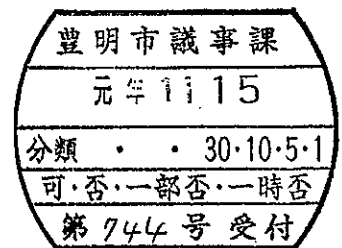 豊明市議事課
元年1115
分類 ・ ・ 30・10・5・1
可・否・一部否・一時否
第744号受付